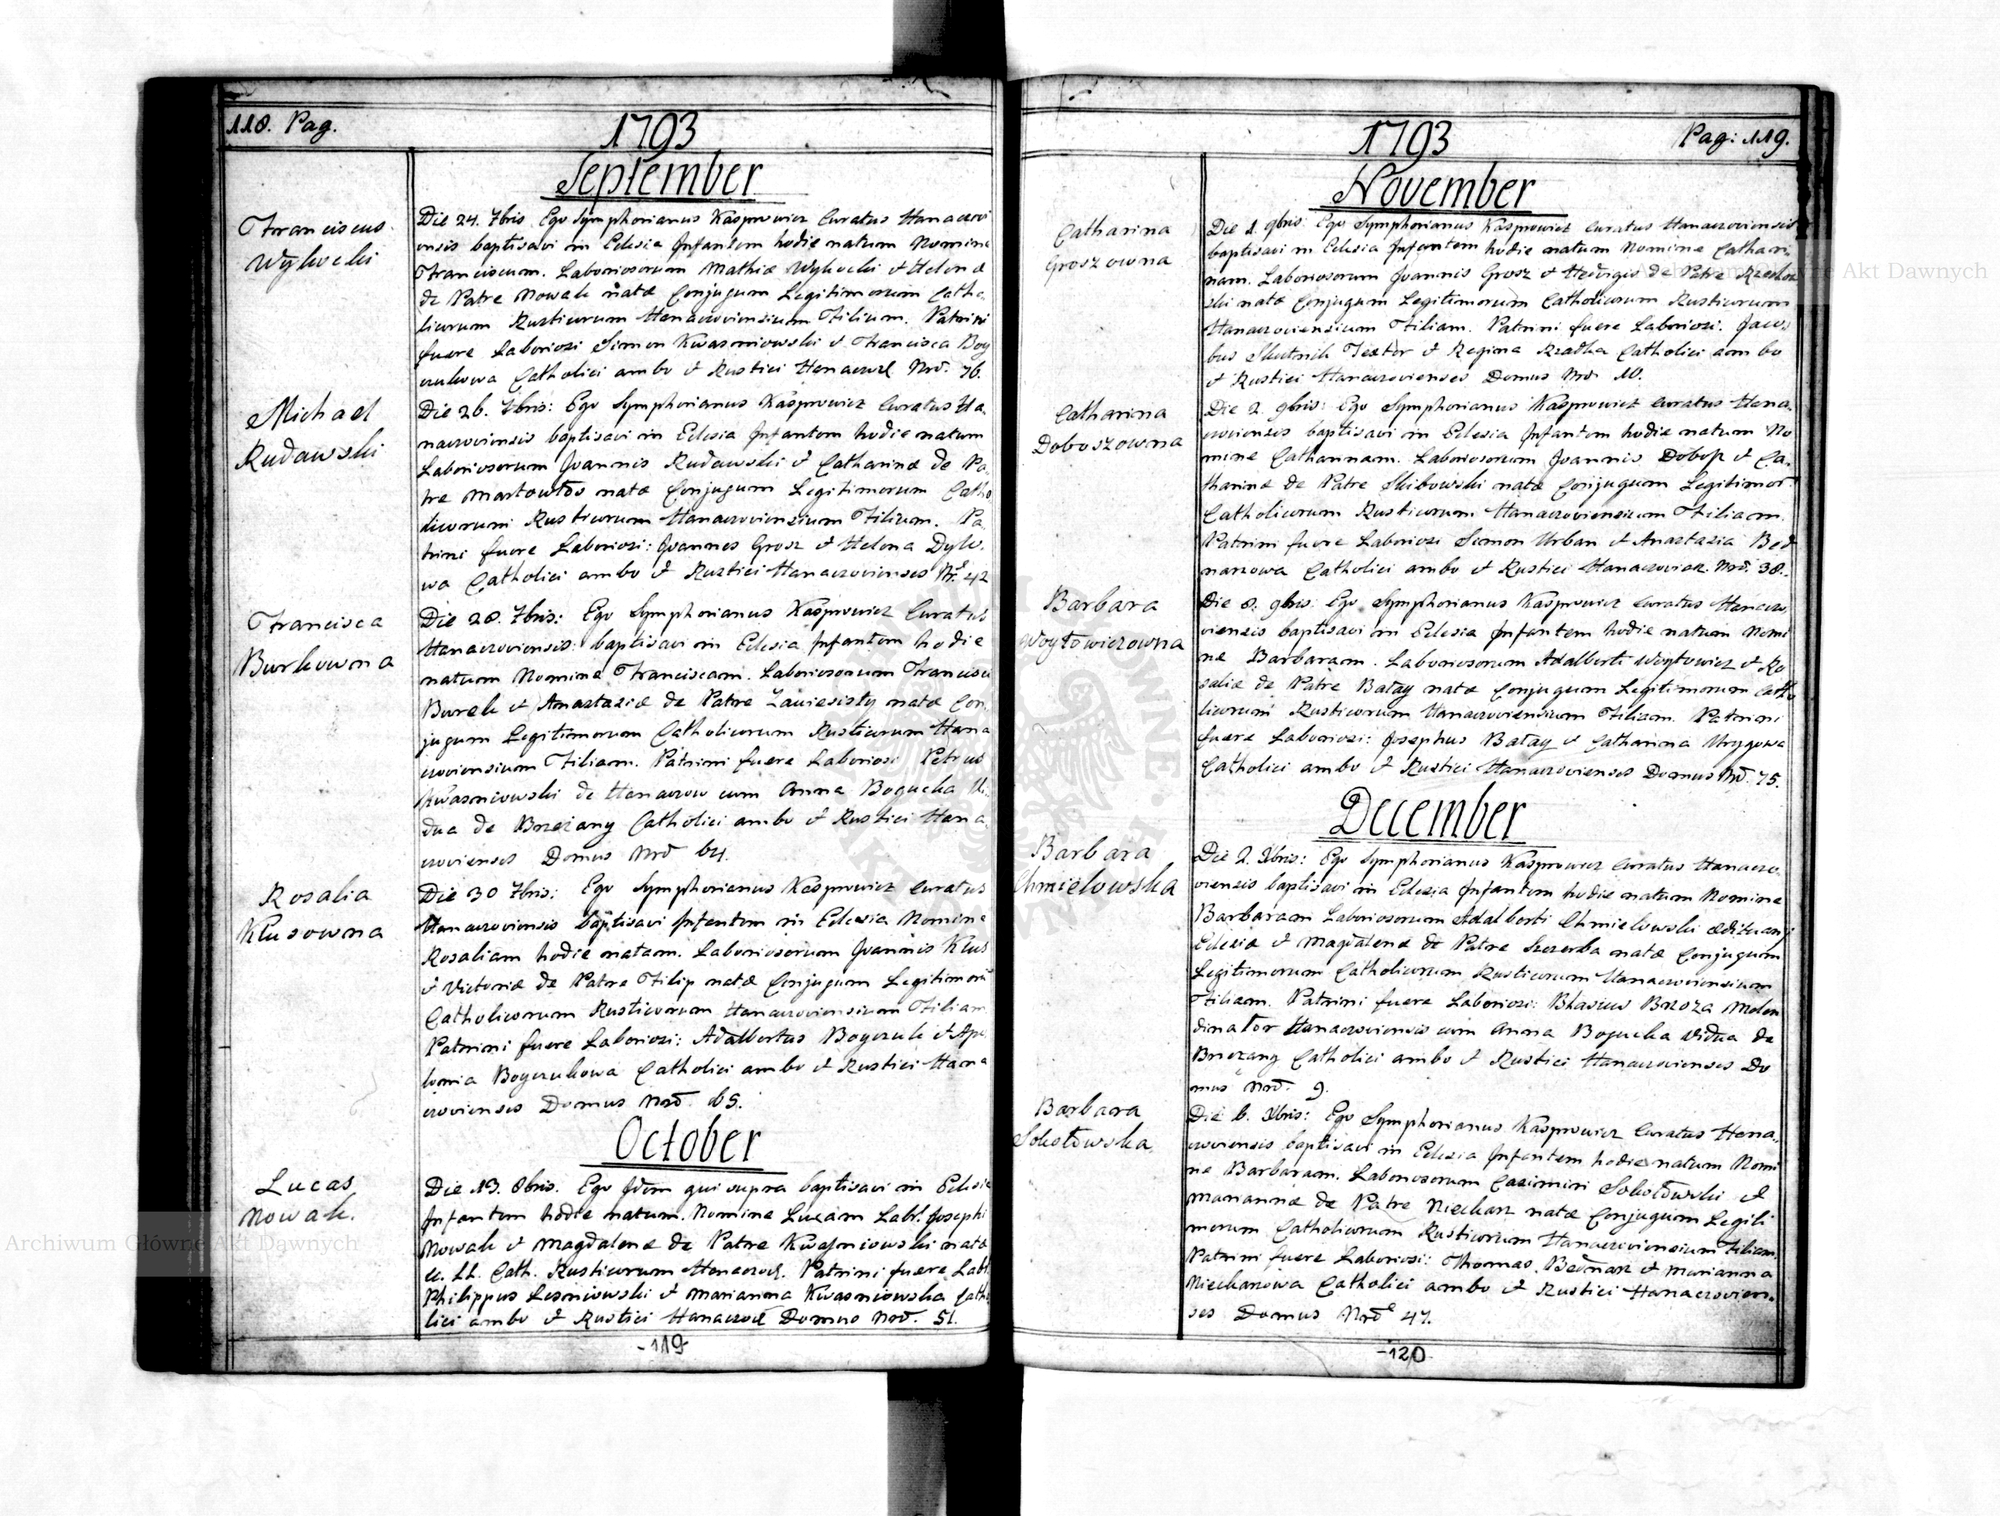 118. Pag.
1793
September
Franciscus
Wykocki
Die 24. 7bris Ego Symphorianus Kasprowicz Curatus Hanaczovi
ensis baptisavi in Eclesia Infantem hodie natum Nomine
Franciscum. Laboriosorum Mathiæ Wykocki & Helenæ
de Patre Nowak natæ Conjugum Legitimorum Catho
licorum Rusticorum Hanaczoviensium Filium. Patrini
fuere Laboriosi Simon Kwasniowski & Francisca Boy
czukowa Catholici ambo & Rustici Hanaczov Nrō. 76.
Michael
Rudawski
Die 26. 7bris: Ego Symphorianus Kasprowicz Curatus Ha„
naczoviensis baptisavi in Eclesia Infantem hodie natum
Laboriosorum Joannis Rudawski & Catharinæ de Pa„
tre natæ Conjugum Legitimorum Catho
licorum Rusticorum Hanaczoviensium Filium. Pa„
trini fuere Laboriosi: Joannes Grosz & Helena Dyko„
wa Catholici ambo & Rustici Hanaczovienses Nr. 42
Francisca
Burkowna
Die 28. 7bris: Ego Symphorianus Kasprowicz Curatus
Hanaczoviensis: baptisavi in Eclesia Infantem hodie
natum Nomine Franciscam. Laboriosorum Francisci
Burek & Anastasiæ de Patre natæ Con„
jugum Legitimorum Catholicorum Rusticorum Hana
czoviensium Filiam. Patrini fuere Laboriosi Petrus
Kwasniowski de Hanaczow cum Anna Bogucka Vi„
dua de Brzezany Catholici ambo & Rustici Hana„
czovienses Domus Nrō 64.
Rosalia
Klusowna
Die 30 7bris: Ego Symphorianus Kasprowicz Curatus
Hanaczoviensis baptisavi Infantem in Eclesia Nomine
Rosaliam hodie natam. Laboriosorum Joannis Klus
& Victoriæ de Patre Filip natæ Conjugum Legitimorū
Catholicorum Rusticorum Hanaczoviensium Filiam
Patrini fuere Laboriosi: Adalbertus Boyczuk & Apo„
lonia Boyczukowa Catholici ambo & Rustici Hana
czovienses Domus Nrō. 65.
October
Lucas
Nowak.
Die 13. 8bris. Ego Idem qui supra baptisavi in Eclesia
Infantem hodie natum. Nomine Lucam Labr. Josephi
Nowak & Magdalenæ de Patre Kwasniowski natæ
cc. LL. Cath. Rusticorum Hanaczov. Patrini fuere Labr.
Philippus Lesniowski & Marianna Kwasniowska Catho
lici ambo & Rustici Hanaczov Domus Nrō. 51.
-119
1793
Pag: 119.
November
Catharina
Groszowna
Die 1. 9bris: Ego Symphorianus Kasprowicz Curatus Hanaczoviensis
baptisavi in Eclesia Infantem hodie natum Nomine Cathari„
nam. Laboriosorum Joannis Grosz & Hedvigis de Patre
ski natæ Conjugum Legitimorum Catholicorum Rusticorum
Hanaczoviensium Filiam. Patrini fuere Laboriosi. Jaco„
bus Skutnik Textor & Regina Catholici ambo
& Rustici Hanaczovienses Domus Nro 10.
Catharina
Doboszowna
Die 2. 9bris: Ego Symphorianus Kasprowicz Curatus Hana„
czoviensis baptisavi in Eclesia Infantem hodie natum No
mine Catharinam. Laboriosorum Joannis Dobosz & Ca„
tharinæ de Patre Skibowski natæ Conjugum Legitimor
Catholicorum Rusticorum Hanaczoviensium Filiam.
Patrini fuere Laboriosi Simon Urban & Anastasia Bed
narzowa Catholici ambo & Rustici Hanaczovien. Nrō. 38.
Barbara
Woytowiczowna
Die 8. 9bris: Ego Symphorianus Kasprowicz Curatus Hanaczo„
viensis baptisavi in Eclesia Infantem hodie natum Nomi
ne Barbaram. Laboriosorum Adalberti Woytowicz & Ro
saliæ de Patre Batay natæ Conjugum Legitimorum Catho
licorum Rusticorum Hanaczoviensium Filiam. Patrini
fuere Laboriosi: Josephus Batay & Catharina
Catholici ambo & Rustici Hanaczovienses Domus Nrō. 75.
December
Barbara
Chmielowska
Die 2. Xbris: Ego Symphorianus Kasprowicz Curatus Hanaczo„
viensis baptisavi in Eclesia Infantem hodie natum Nomine
Barbaram Laboriosorum Adalberti Chmielowski æditуani
Eclesiæ & Magdalenæ de Patre Szczerba natæ Conjugum
Legitimorum Catholicorum Rusticorum Hanaczoviensium
Filiam. Patrini fuere Laboriosi: Blasius Brzoza Molen
dinator Hanaczoviensis cum Anna Bogucka Vidua de
Brzezany Catholici ambo & Rustici Hanaczovienses Do
mus Nrō. 9.
Barbara
Sokołowska
Die 6. Xbris: Ego Symphorianus Kasprowicz Curatus Hana„
czoviensis baptisavi in Eclesia Infantem hodie natum Nomi
ne Barbaram. Laboriosorum Casimiri Sokołowski &
Mariannæ de Patre Niecharz natæ Conjugum Legiti
morum Catholicorum Rusticorum Hanaczoviensium Filiam.
Patrini fuere Laboriosi: Thomas Bednarz & Marianna
Niecharzowa Catholici ambo & Rustici Hanaczovien„
ses Domus Nrō 47.
-120
Archiwum Główne Akt Dawnych
Archiwum Główne Akt Dawnych